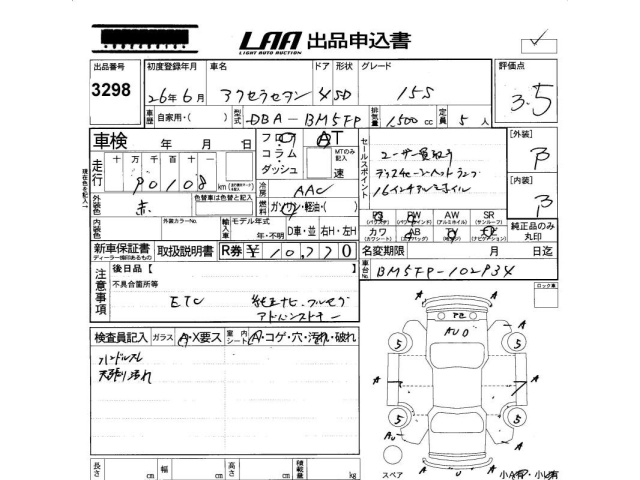 LAA 出品申込書
LIGHT AUTO AUCTION
出品番号 初度登録年月 車名 ドア 形状 グレード 評価点
3298 26年6月 アクセラセダン 4 SD 15S 3.5
車歴 自家用・( ) 型式 DBA-BM5FP 排気量 1,500cc 定員 5人
車検 年 月 日
フロア コラム ダッシュ AT MTのみ記入 速
セールスポイント
ユーザー買取り
ディスチャージヘッドランプ
16インチアルミホイル
[外装] B
[内装] B
現在色を記入↑
走行 十万千百十一
90108 km
冷房 AAC
外装色 赤 色替車は色替と記入
燃料 ガソリン・軽油・( )
内装色 外装カラーNo. 輸入車 モデル年式 年 D車・並 右H・左H
PS PW AW SR
(パワステ) (パワーウインド) (アルミホイル) (サンルーフ)
カワ AB TV
(カワシート) (エアバッグ) (テレビ) (ナビゲーション)
純正品のみ丸印
新車保証書 取扱説明書 R券 ¥10,770
ディーラー捺印あるもの
名変期限 月 日迄
車台No. BM5FP-102934
注意事項 後日品【 】
不具合箇所等
ETC 純正ナビ フルセグ
アドバンストキー
ロック車
検査員記入 ガラス A・X要ス 室内 シート A・コゲ・穴・汚れ・破れ
ハンドルスレ
天張り汚れ
A
AUO
5 5
A A
5 5
AU A
A U A
スペア 小A有・小U有
長さ cm 幅 cm 高さ cm 積載量 kg